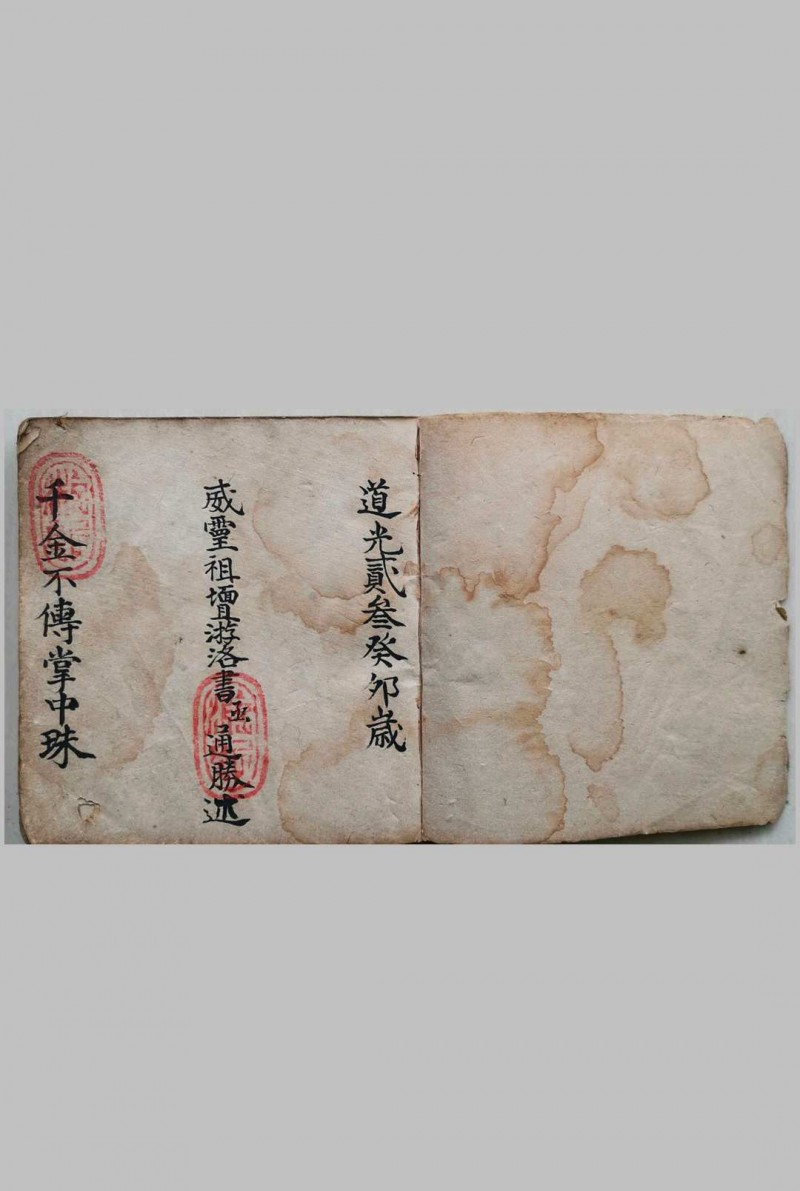 道光貳叁癸卯歲
威靈祖壇游洛書 通勝述
千金不傳掌中珠